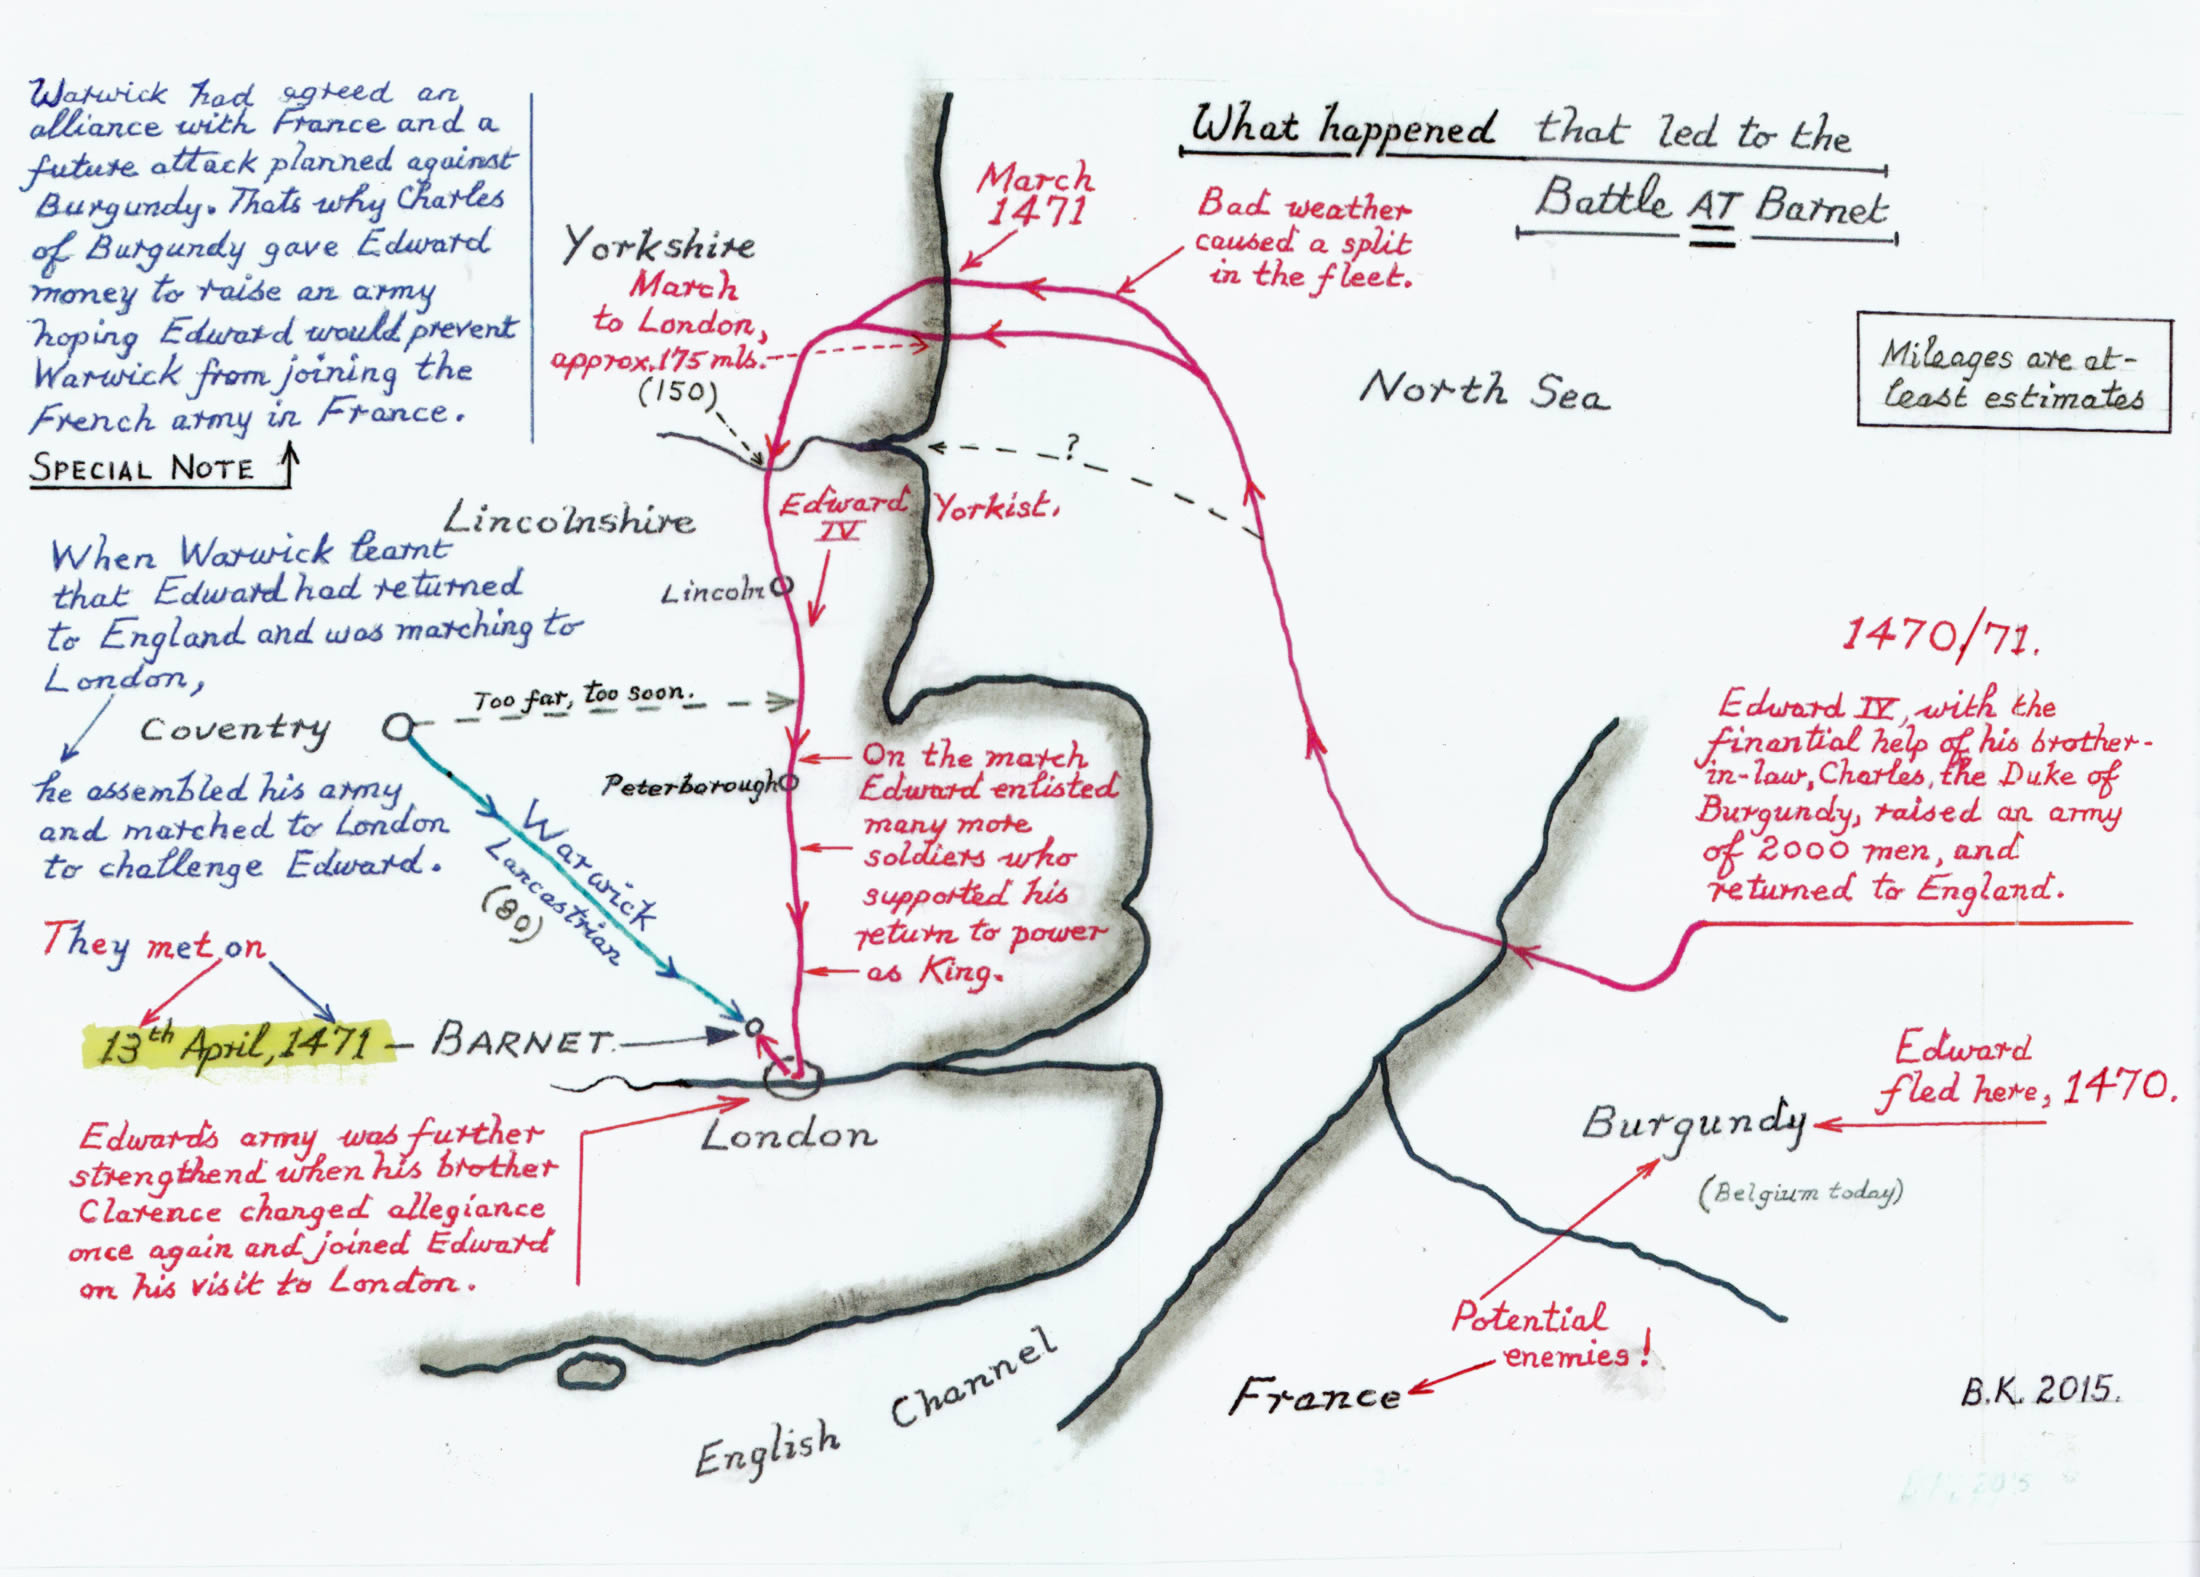 What happened that led to the
Battle AT Barnet
Warwick had agreed an
alliance with France and a
future attack planned against
Burgundy. Thats why Charles
of Burgundy gave Edward
money to raise an army
hoping Edward would prevent
Warwick from joining the
French army in France.
SPECIAL NOTE
When Warwick learnt
that Edward had returned
to England and was marching to
London,
Coventry
he assembled his army
and marched to London
to challenge Edward.
They met on
13th April, 1471 – BARNET.
Edwards army was further
strengthend when his brother
Clarence changed allegiance
once again and joined Edward
on his visit to London.
Yorkshire
March
to London,
approx. 175 mls.
(150)
Lincolnshire
Lincoln
Edward
IV
Yorkist.
Too far, too soon.
Peterborough
Warwick
Lancastrian
(80)
On the march
Edward enlisted
many more
soldiers who
supported his
return to power
as King.
London
English Channel
March
1471
Bad weather
caused a split
in the fleet.
North Sea
?
Mileages are at-
least estimates
1470/71.
Edward IV, with the
finantial help of his brother-
in-law, Charles, the Duke of
Burgundy, raised an army
of 2000 men, and
returned to England.
Edward
fled here, 1470.
Burgundy
(Belgium today)
Potential
enemies!
France
B.K. 2015.